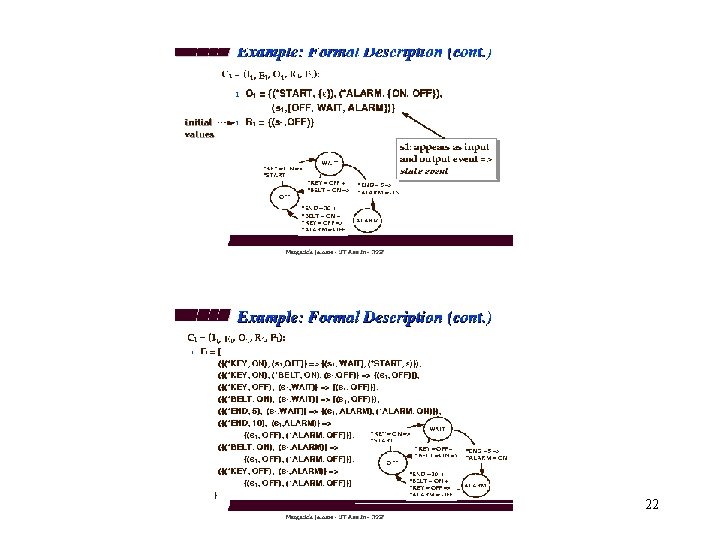 Example: Formal Description (cont.)
C1 = (I1, E1, O1, R1, F1):
O1 = {(*START, {ε}), (*ALARM, {ON, OFF}),
(s1,[OFF, WAIT, ALARM])}
initial
R1 = {(s1,OFF)}
values
s1: appears as input
and output event =>
state event
WAIT
*START
*KEY = OFF +
*BELT = ON =>
*END = 5 =>
OFF
*BELT = ON +
*KEY = OFF =>
ALARM
Example: Formal Description (cont.)
C1 = (I1, E1, O1, R1, F1):
F1 = {
({(*KEY, ON), (s1,OFF)} => {(s1, WAIT), (*START,ε)}),
({(*KEY, ON), (*BELT, ON), (s1,OFF)} => {(s1, OFF)}),
({(*KEY, OFF), (s1,WAIT)} => {(s1, OFF)}),
({(*BELT, ON), (s1,WAIT)} => {(s1, OFF)}),
({(*END, 5), (s1,WAIT)} => {(s1, ALARM), (*ALARM, ON)}),
({(*END, 10), (s1,ALARM)} =>
{(s1, OFF), (*ALARM, OFF)}),
({(*BELT, ON), (s1,ALARM)} =>
{(s1, OFF), (*ALARM, OFF)}),
({(*KEY, OFF), (s1,ALARM)} =>
{(s1, OFF), (*ALARM, OFF)})
}
WAIT
*KEY = ON =>
*START
*KEY = OFF +
*END = 5 =>
*ALARM = ON
OFF
*BELT = ON +
*KEY = OFF =>
ALARM
22